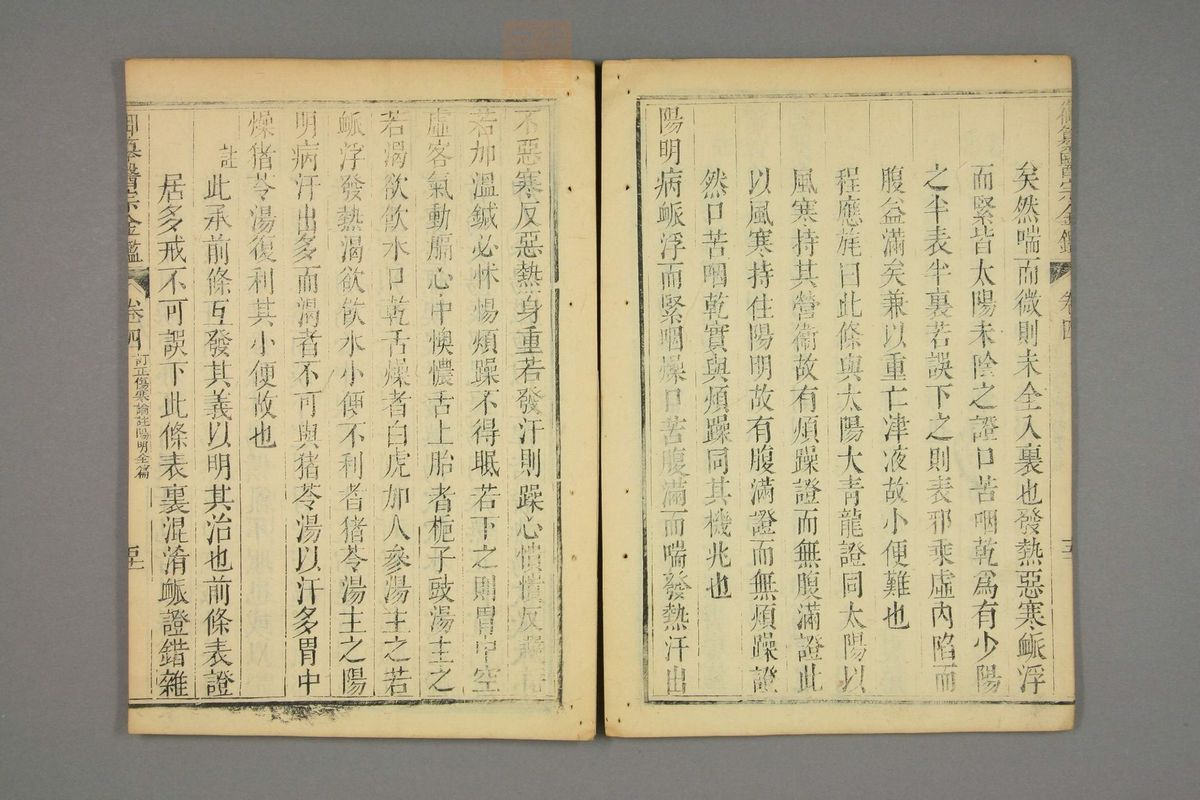 御纂醫宗金鑑 卷四
矣然喘而微則未全入裏也發熱惡寒䘑浮
而緊皆太陽未除之證口苦咽乾爲有少陽
之半表半裏若誤下之則表邪乘虛內陷而
腹益滿矣兼以重亡津液故小便難也
程應旄曰此條與太陽大青龍證同太陽以
風寒持其營衞故有煩躁證而無腹滿證此
以風寒持住陽明故有腹滿證而無煩躁證
然口苦咽乾實與煩躁同其機兆也
陽明病䘑浮而緊咽燥口苦腹滿而喘發熱汗出
不惡寒反惡熱身重若發汗則躁心憒憒反
若加溫鍼必怵惕煩躁不得眠若下之則胃中空
虛客氣動膈心中懊憹舌上胎者梔子豉湯主之
若渴欲飲水口乾舌燥者白虎加人參湯主之若
䘑浮發熱渴欲飲水小便不利者猪苓湯主之陽
明病汗出多而渴者不可與猪苓湯以汗多胃中
燥猪苓湯復利其小便故也
註
此承前條互發其義以明其治也前條表證
居多戒不可誤下此條表裏混淆䘑證錯雜
御纂醫宗金鑑 卷四 訂正傷寒論註陽明全篇